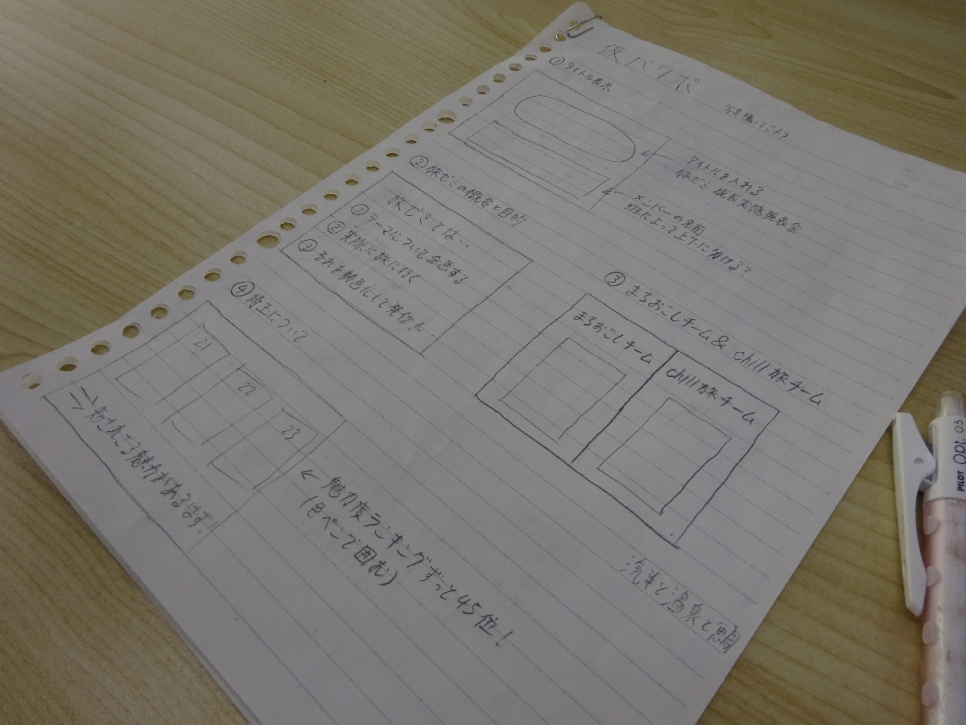 仮パワポ
写真撮ってこよう
① タイトル表示
タイトルを入れる
旅ゼミ 成果実感発表会
メンバーの名前
班によって上下に分ける?
② 旅ゼミの概要と目的
旅ゼミとは…
① テーマについて企画する
② 実際に旅に行く
③ それを動画にして発信!!
③ まちおこしチーム & chill旅チーム
まちおこしチーム
chill旅チーム
④ 埼玉について
21
22
23
← 魅力度ランキングずっと45位!
(白ペンで囲む)
魅力があるはず!!
温泉と
PILOT Opt. 0.5